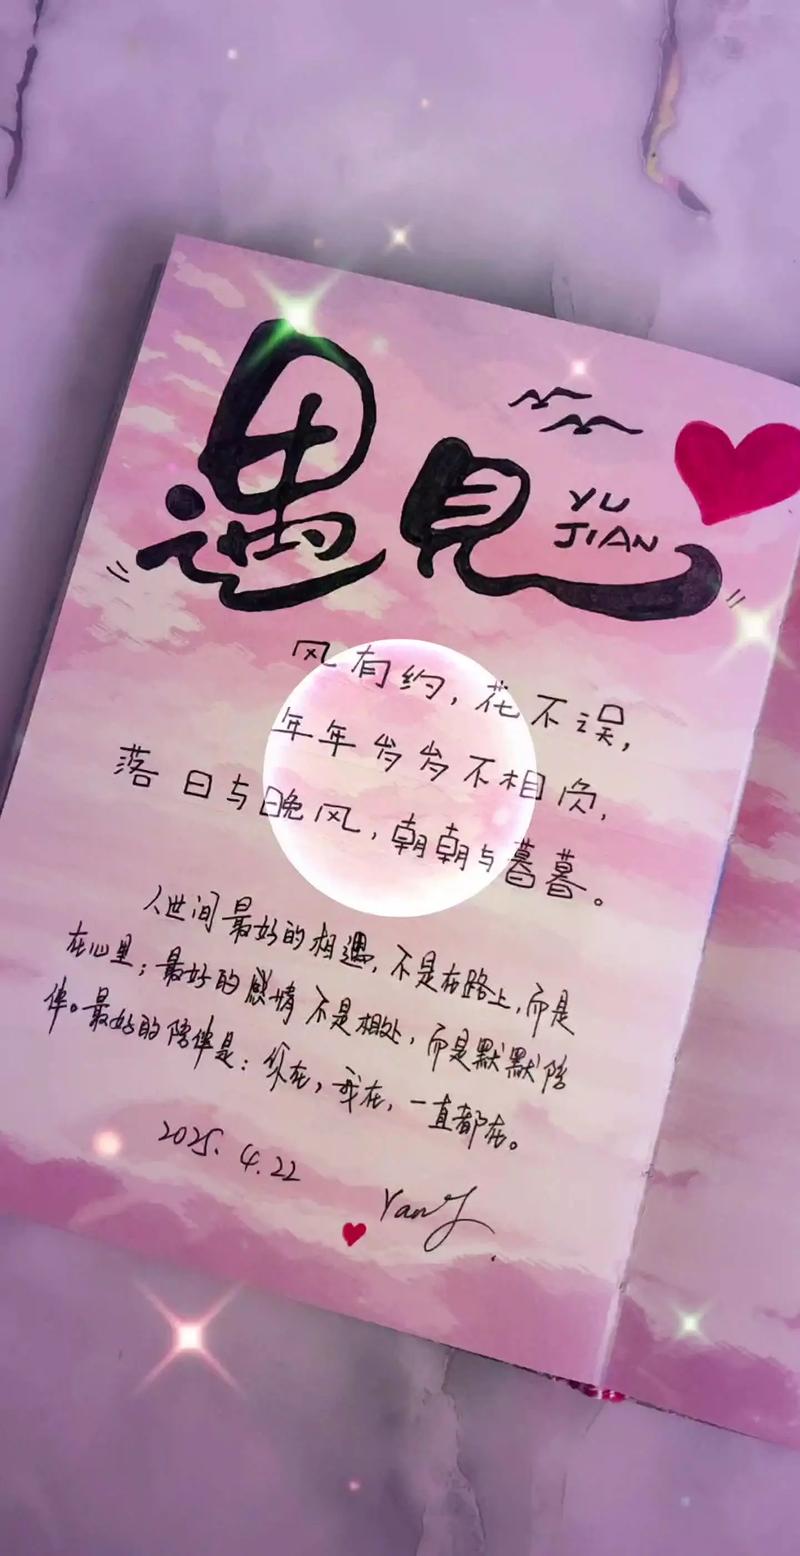 遇見
YU
JIAN
风有约，花不误，
年年岁岁不相负，
落日与晚风，朝朝与暮暮。
人世间最好的相遇，不是在路上，而是
在心里；最好的感情不是相处，而是默默陪
伴。最好的陪伴是：你在，我在，一直都在。
2025.4.22